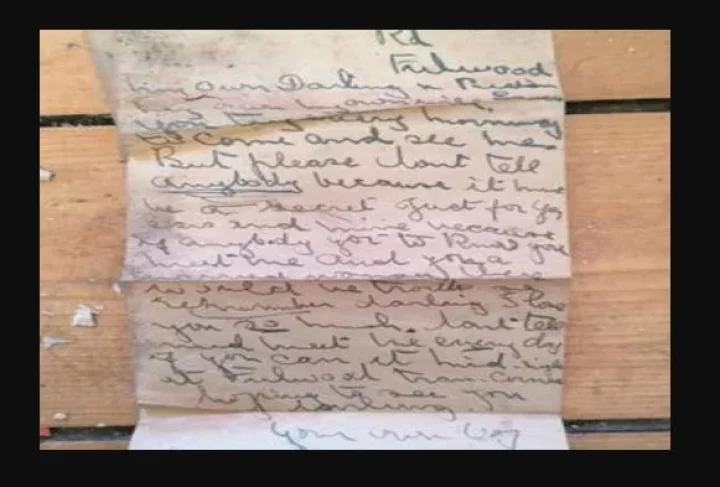 Rd
Fulwood
My own Darling
you try every morning
to come and see me
But please dont tell
anybody because it must
be a secret Just for you
and mine because
if anybody got to know you
meet me and your a
married
would be trouble
remember darling I love
you so much. dont tell
and meet me every day
if you can at mid-night
at Fulwood Tram. Corner
hoping to see you
darling.
your own